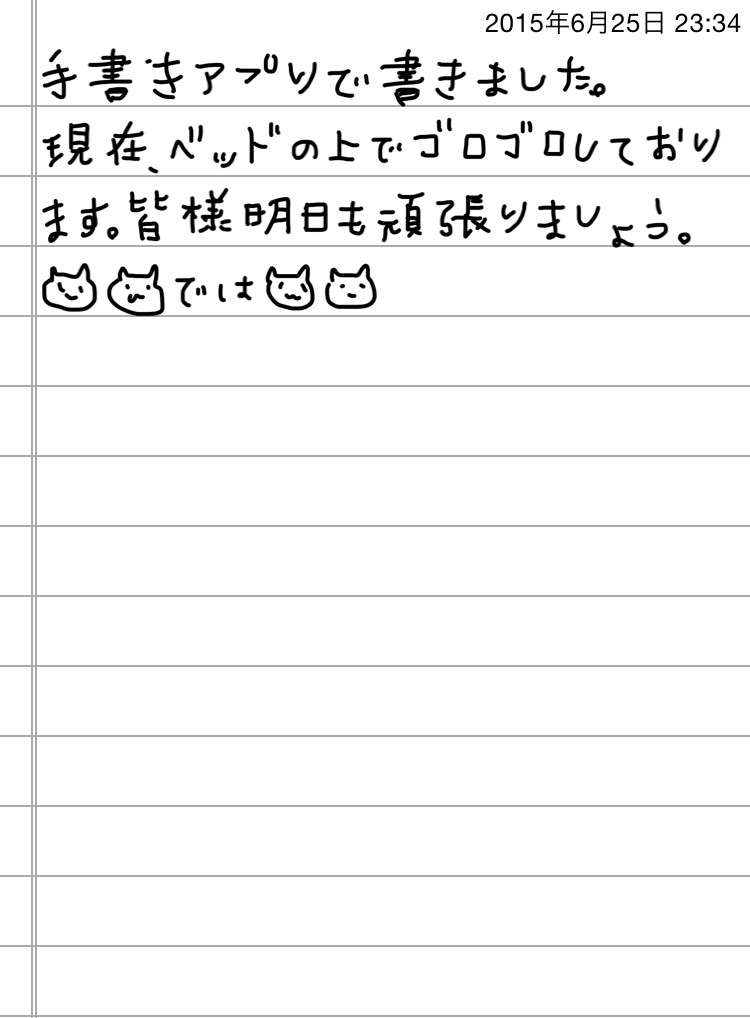 2015年6月25日 23:34
手書きアプリで書きました。
現在、ベッドの上でゴロゴロしており
ます。皆様明日も頑張りましょう。
では